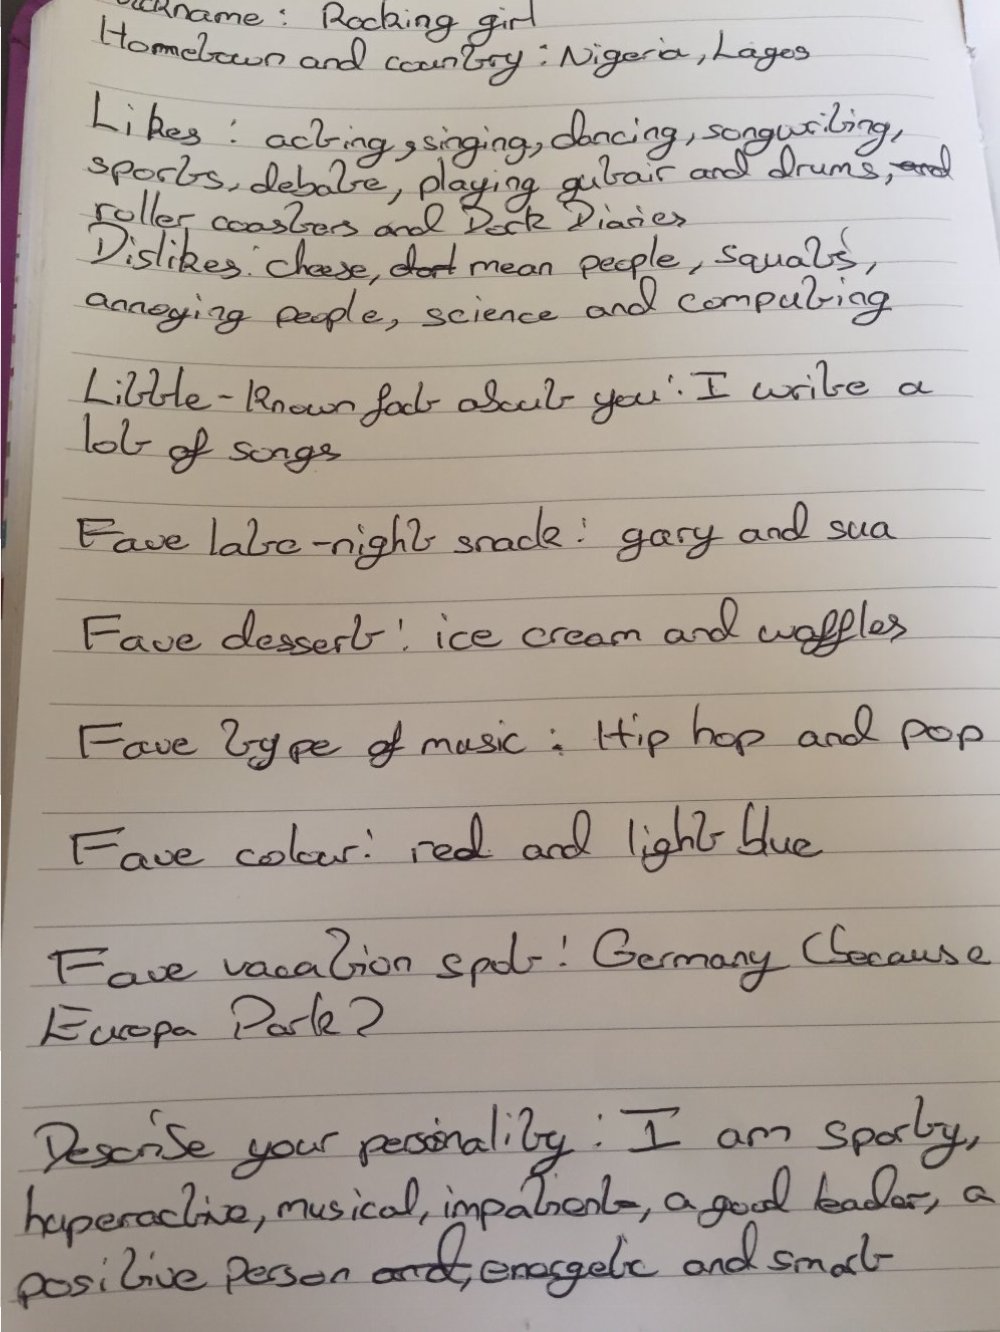 Nickname : Rocking girl
Hometown and country : Nigeria, Lagos
Likes : acting, singing, dancing, songwriting,
sports, debate, playing guitair and drums, and
roller coasters and Dork Diaries
Dislikes : cheese, mean people, squats,
annoying people, science and computing
Little-known fact about you : I write a
lot of songs
Fave late-night snack : gary and sua
Fave dessert : ice cream and waffles
Fave type of music : Hip hop and pop
Fave colour : red and light blue
Fave vacation spot : Germany (because
Europa Park)
Describe your personality : I am sporty,
hyperactive, musical, impatient, a good leader, a
positive person and, energetic and smart